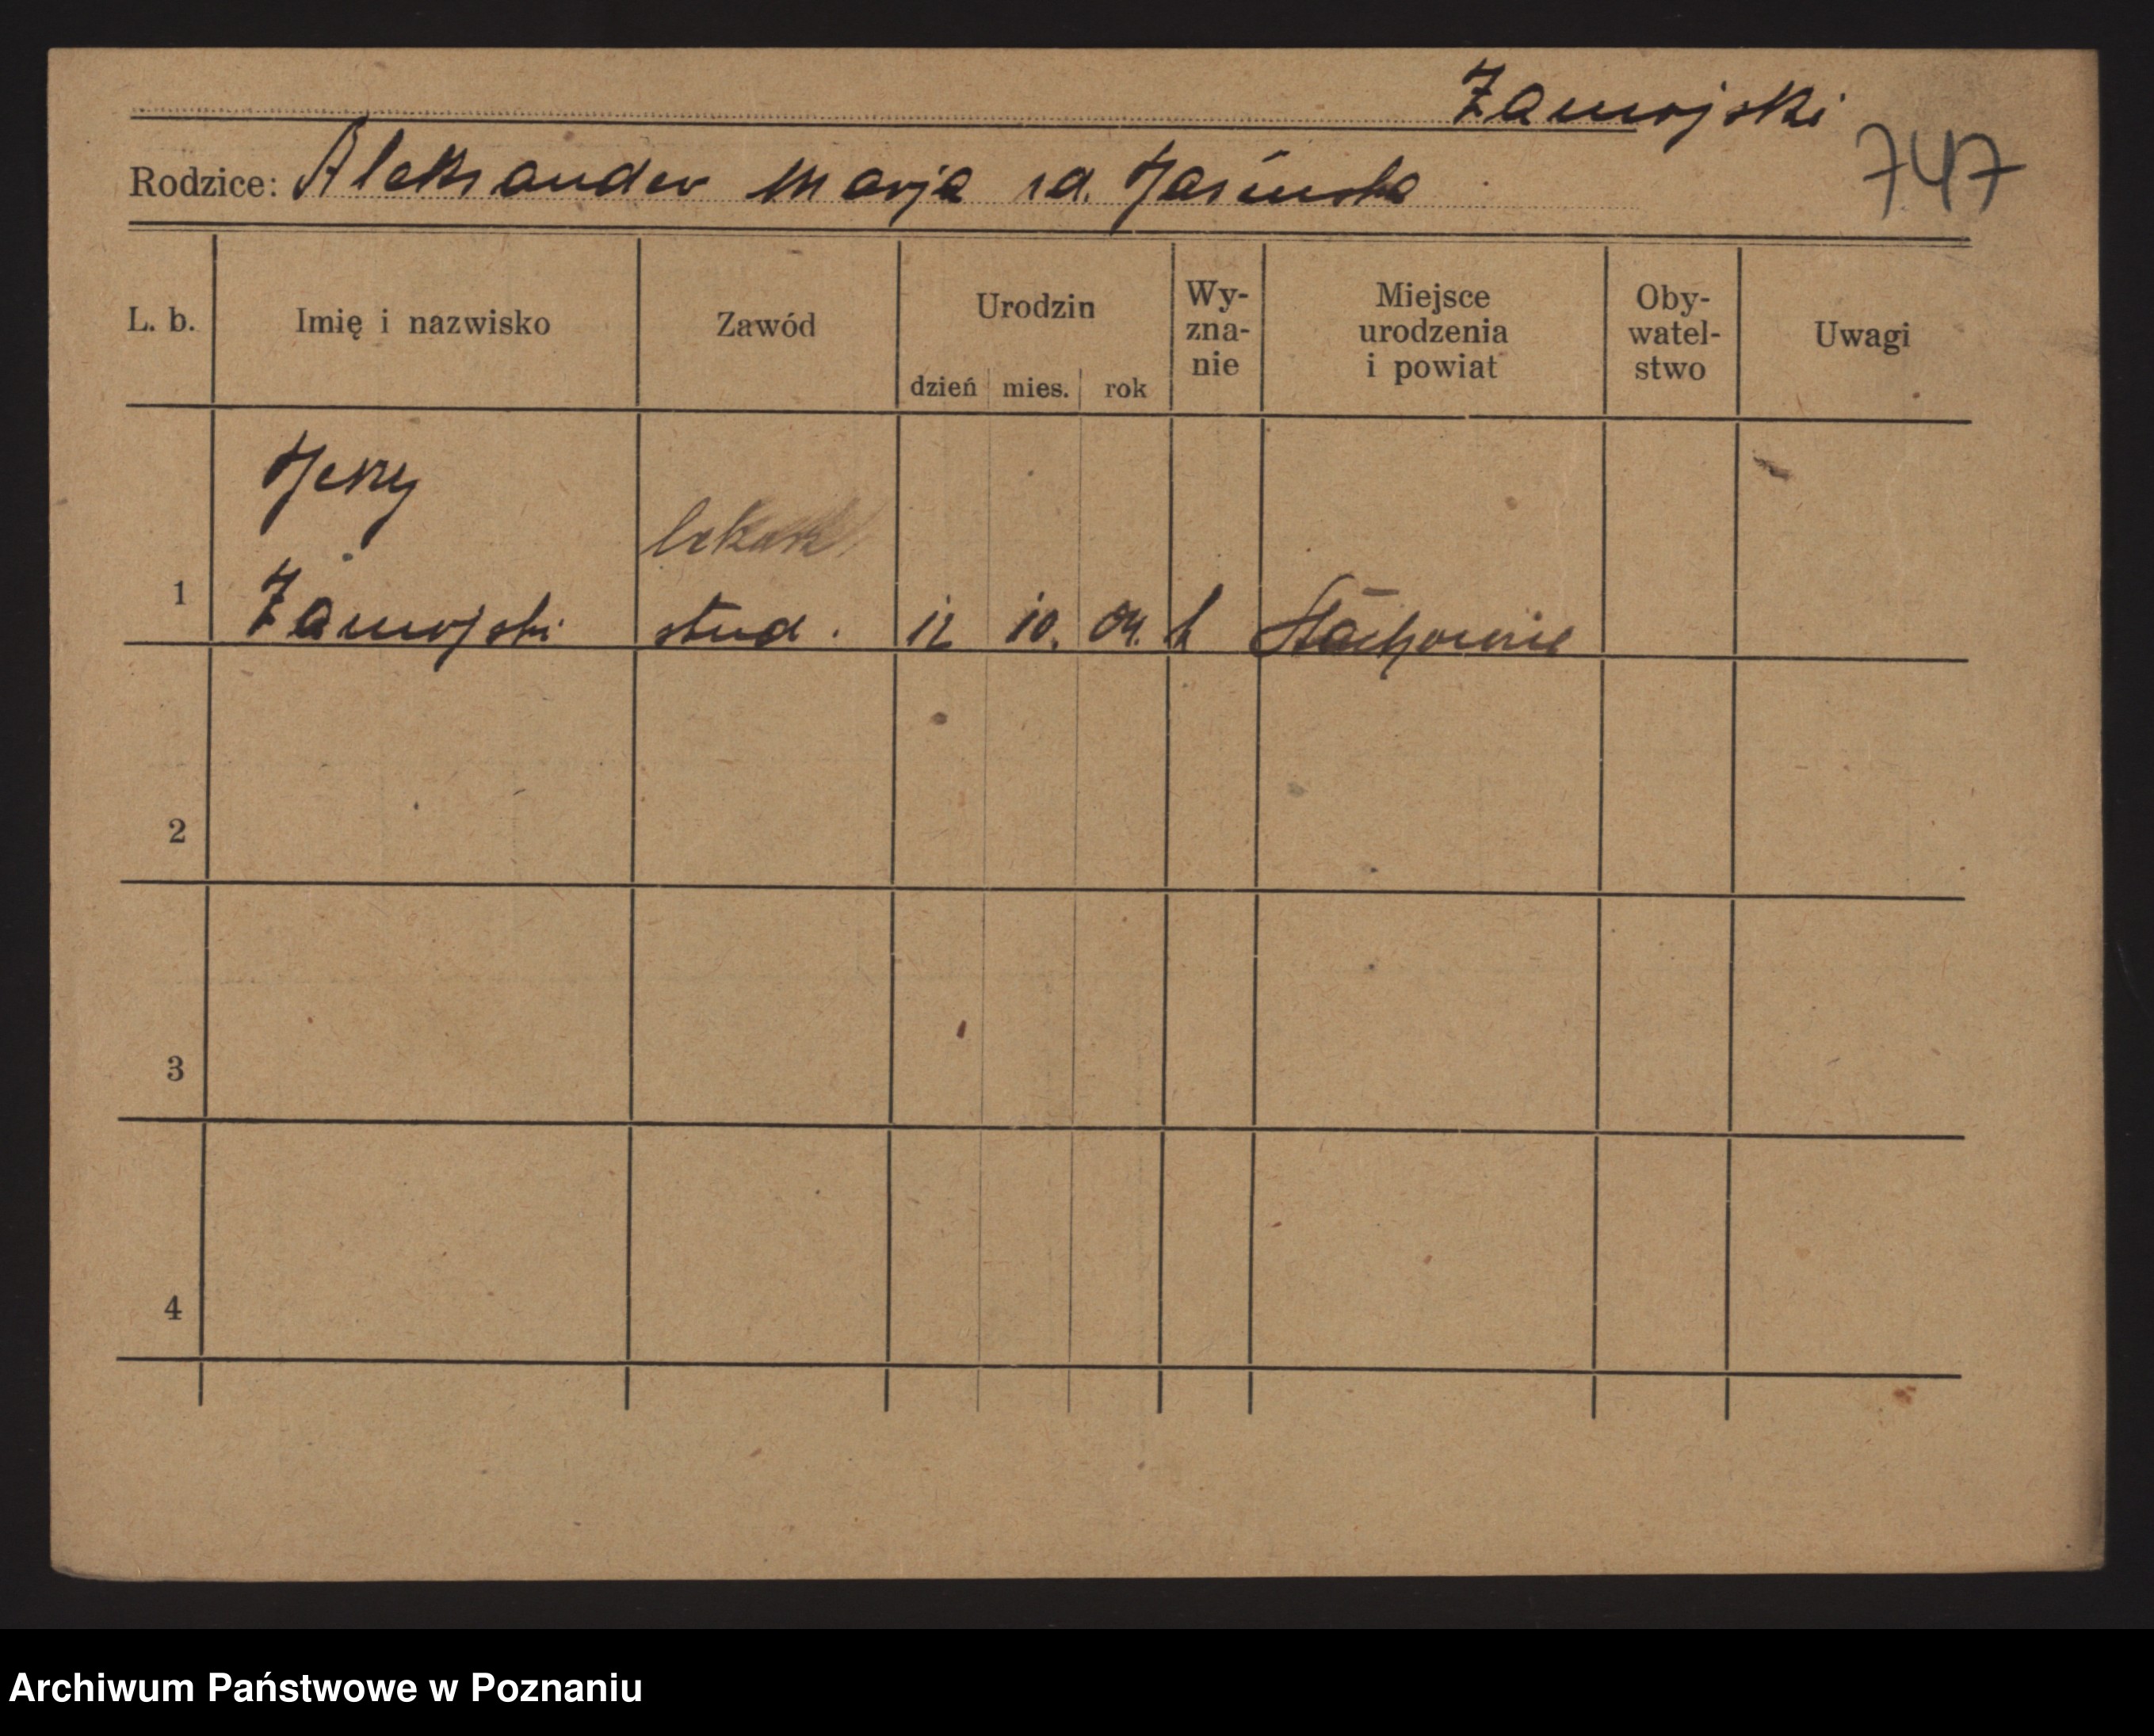 Zamojski
747
Rodzice: Aleksander Marja zd. Jasińska
L. b. Imię i nazwisko Zawód Urodzin Wy- Miejsce Oby- Uwagi
zna- urodzenia watel-
nie i powiat stwo
dzień mies. rok
Jerzy
lekarz
1 Zamojski stud. 12 10. 04. k
2
3
4
Archiwum Państwowe w Poznaniu